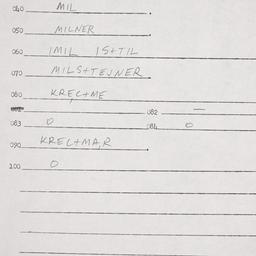 040 MIL
050 MILNER
060 IMIL IS+TIL
070 MILS+TEJNER
080 KRĘC+ME
082 —
083 0 084 0
090 KREC+MA,R
100 0